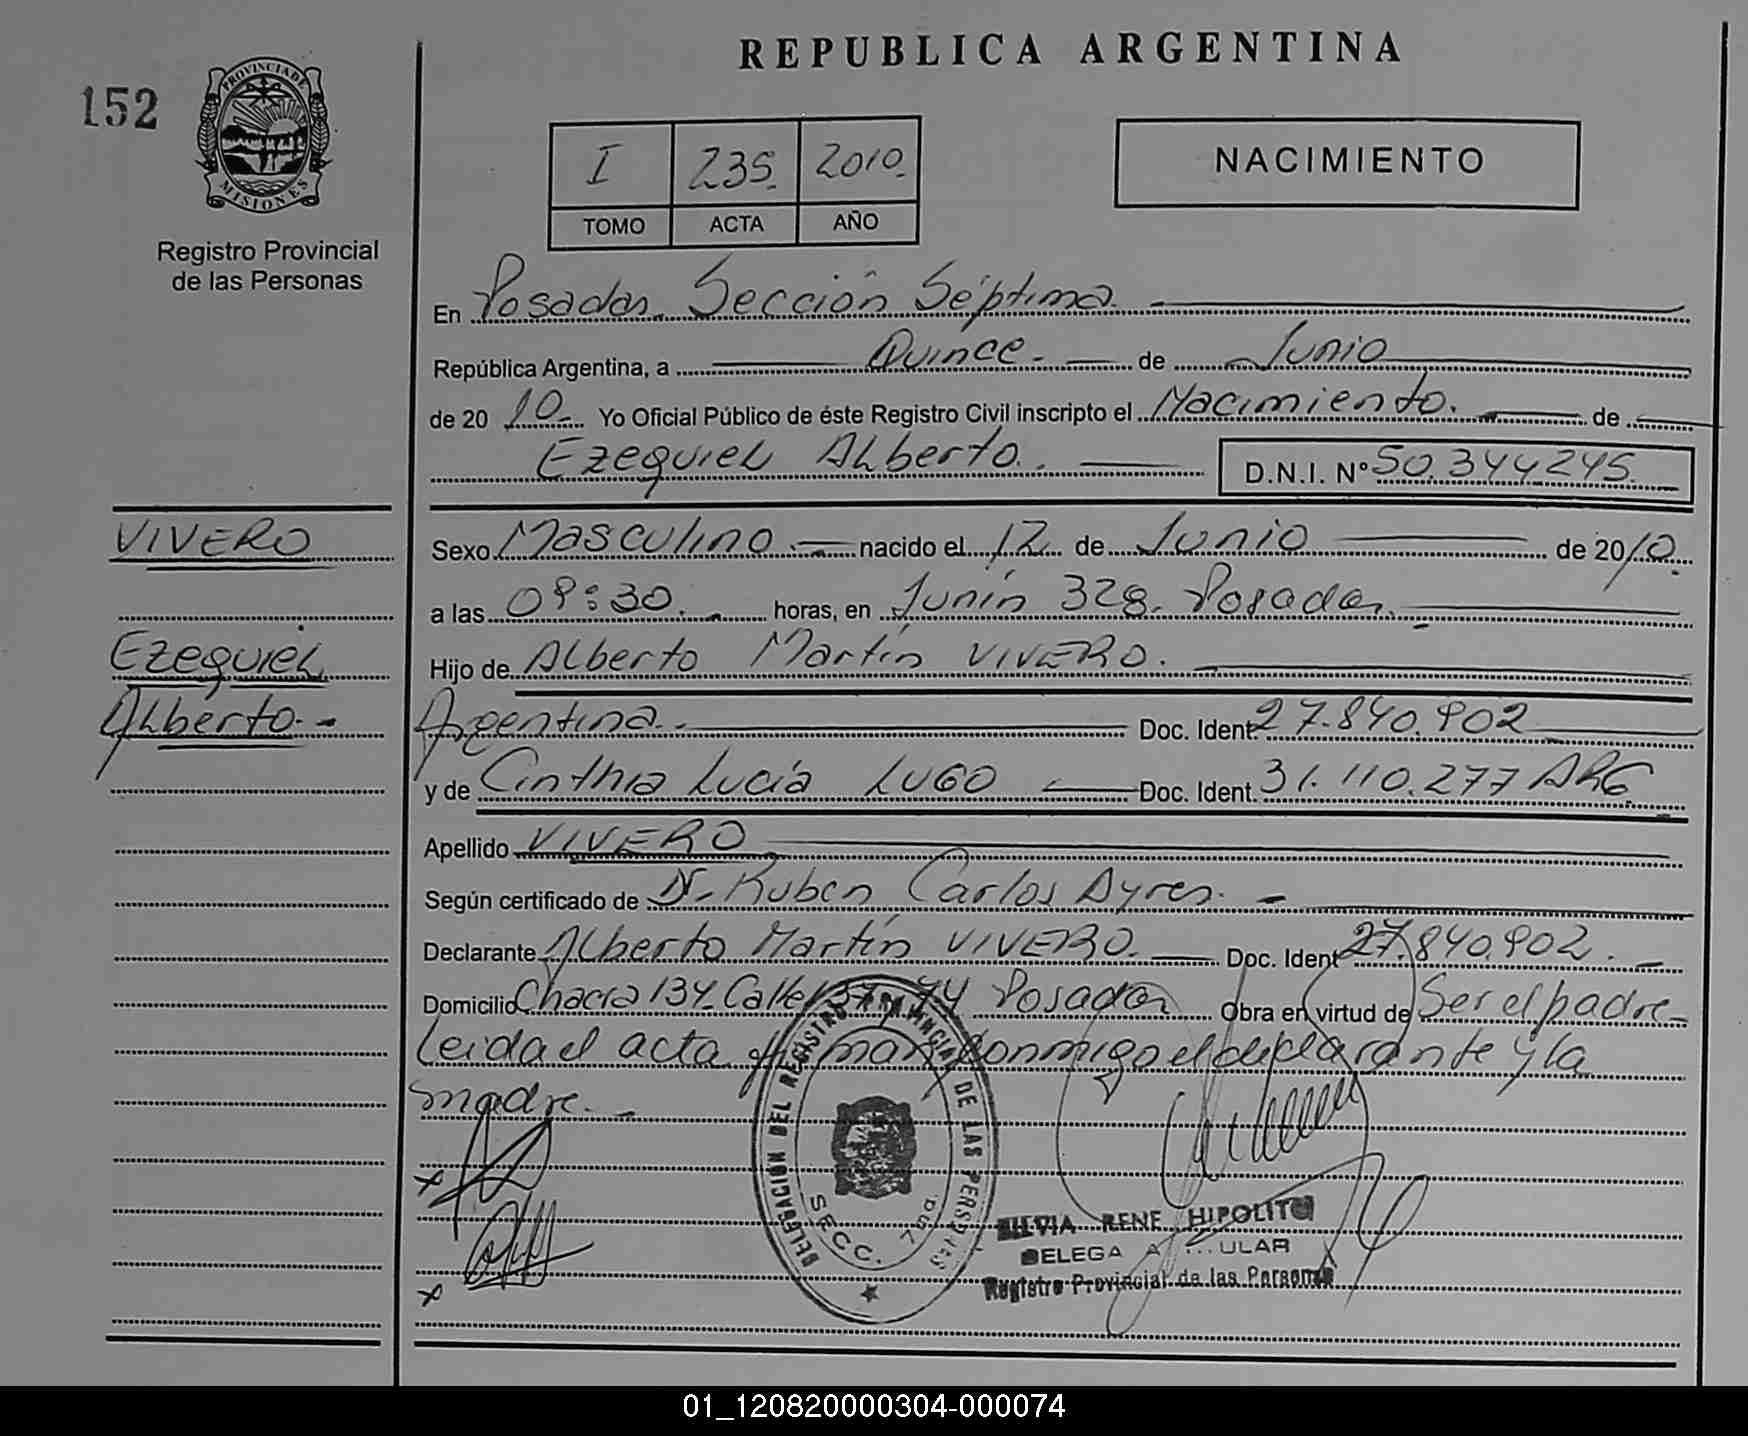 REPUBLICA ARGENTINA
152
PROVINCIA DE
MISIONES
Registro Provincial
de las Personas
I 235 2010
TOMO ACTA AÑO
NACIMIENTO
En Posadas Sección Séptima
República Argentina, a Quince de Junio
de 2010 Yo Oficial Público de éste Registro Civil inscripto el Nacimiento. de
Ezequiel Alberto. D.N.I. Nº 50.344245.
VIVERO
Ezequiel
Alberto.-
Sexo Masculino nacido el 12 de Junio de 2010
a las 09:30. horas, en Junín 328. Posadas.
Hijo de Alberto Martín VIVERO.
Argentina. Doc. Ident. 27.840.902
y de Cinthia Lucía LUGO Doc. Ident. 31.110.277 ARG.
Apellido VIVERO
Según certificado de Dr. Ruben Carlos Ayres.
Declarante Alberto Martín VIVERO. Doc. Ident 27.840.902.
Domicilio Chacra 134 Calle 44 Posadas Obra en virtud de Ser el padre
Leida el acta firman conmigo el declarante y la
madre.
DELEGACIÓN DEL REGISTRO PROVINCIAL DE LAS PERSONAS
SECC. 7ma.
SILVIA RENE HIPOLITO
Registro Provincial de las Personas
01_120820000304-000074